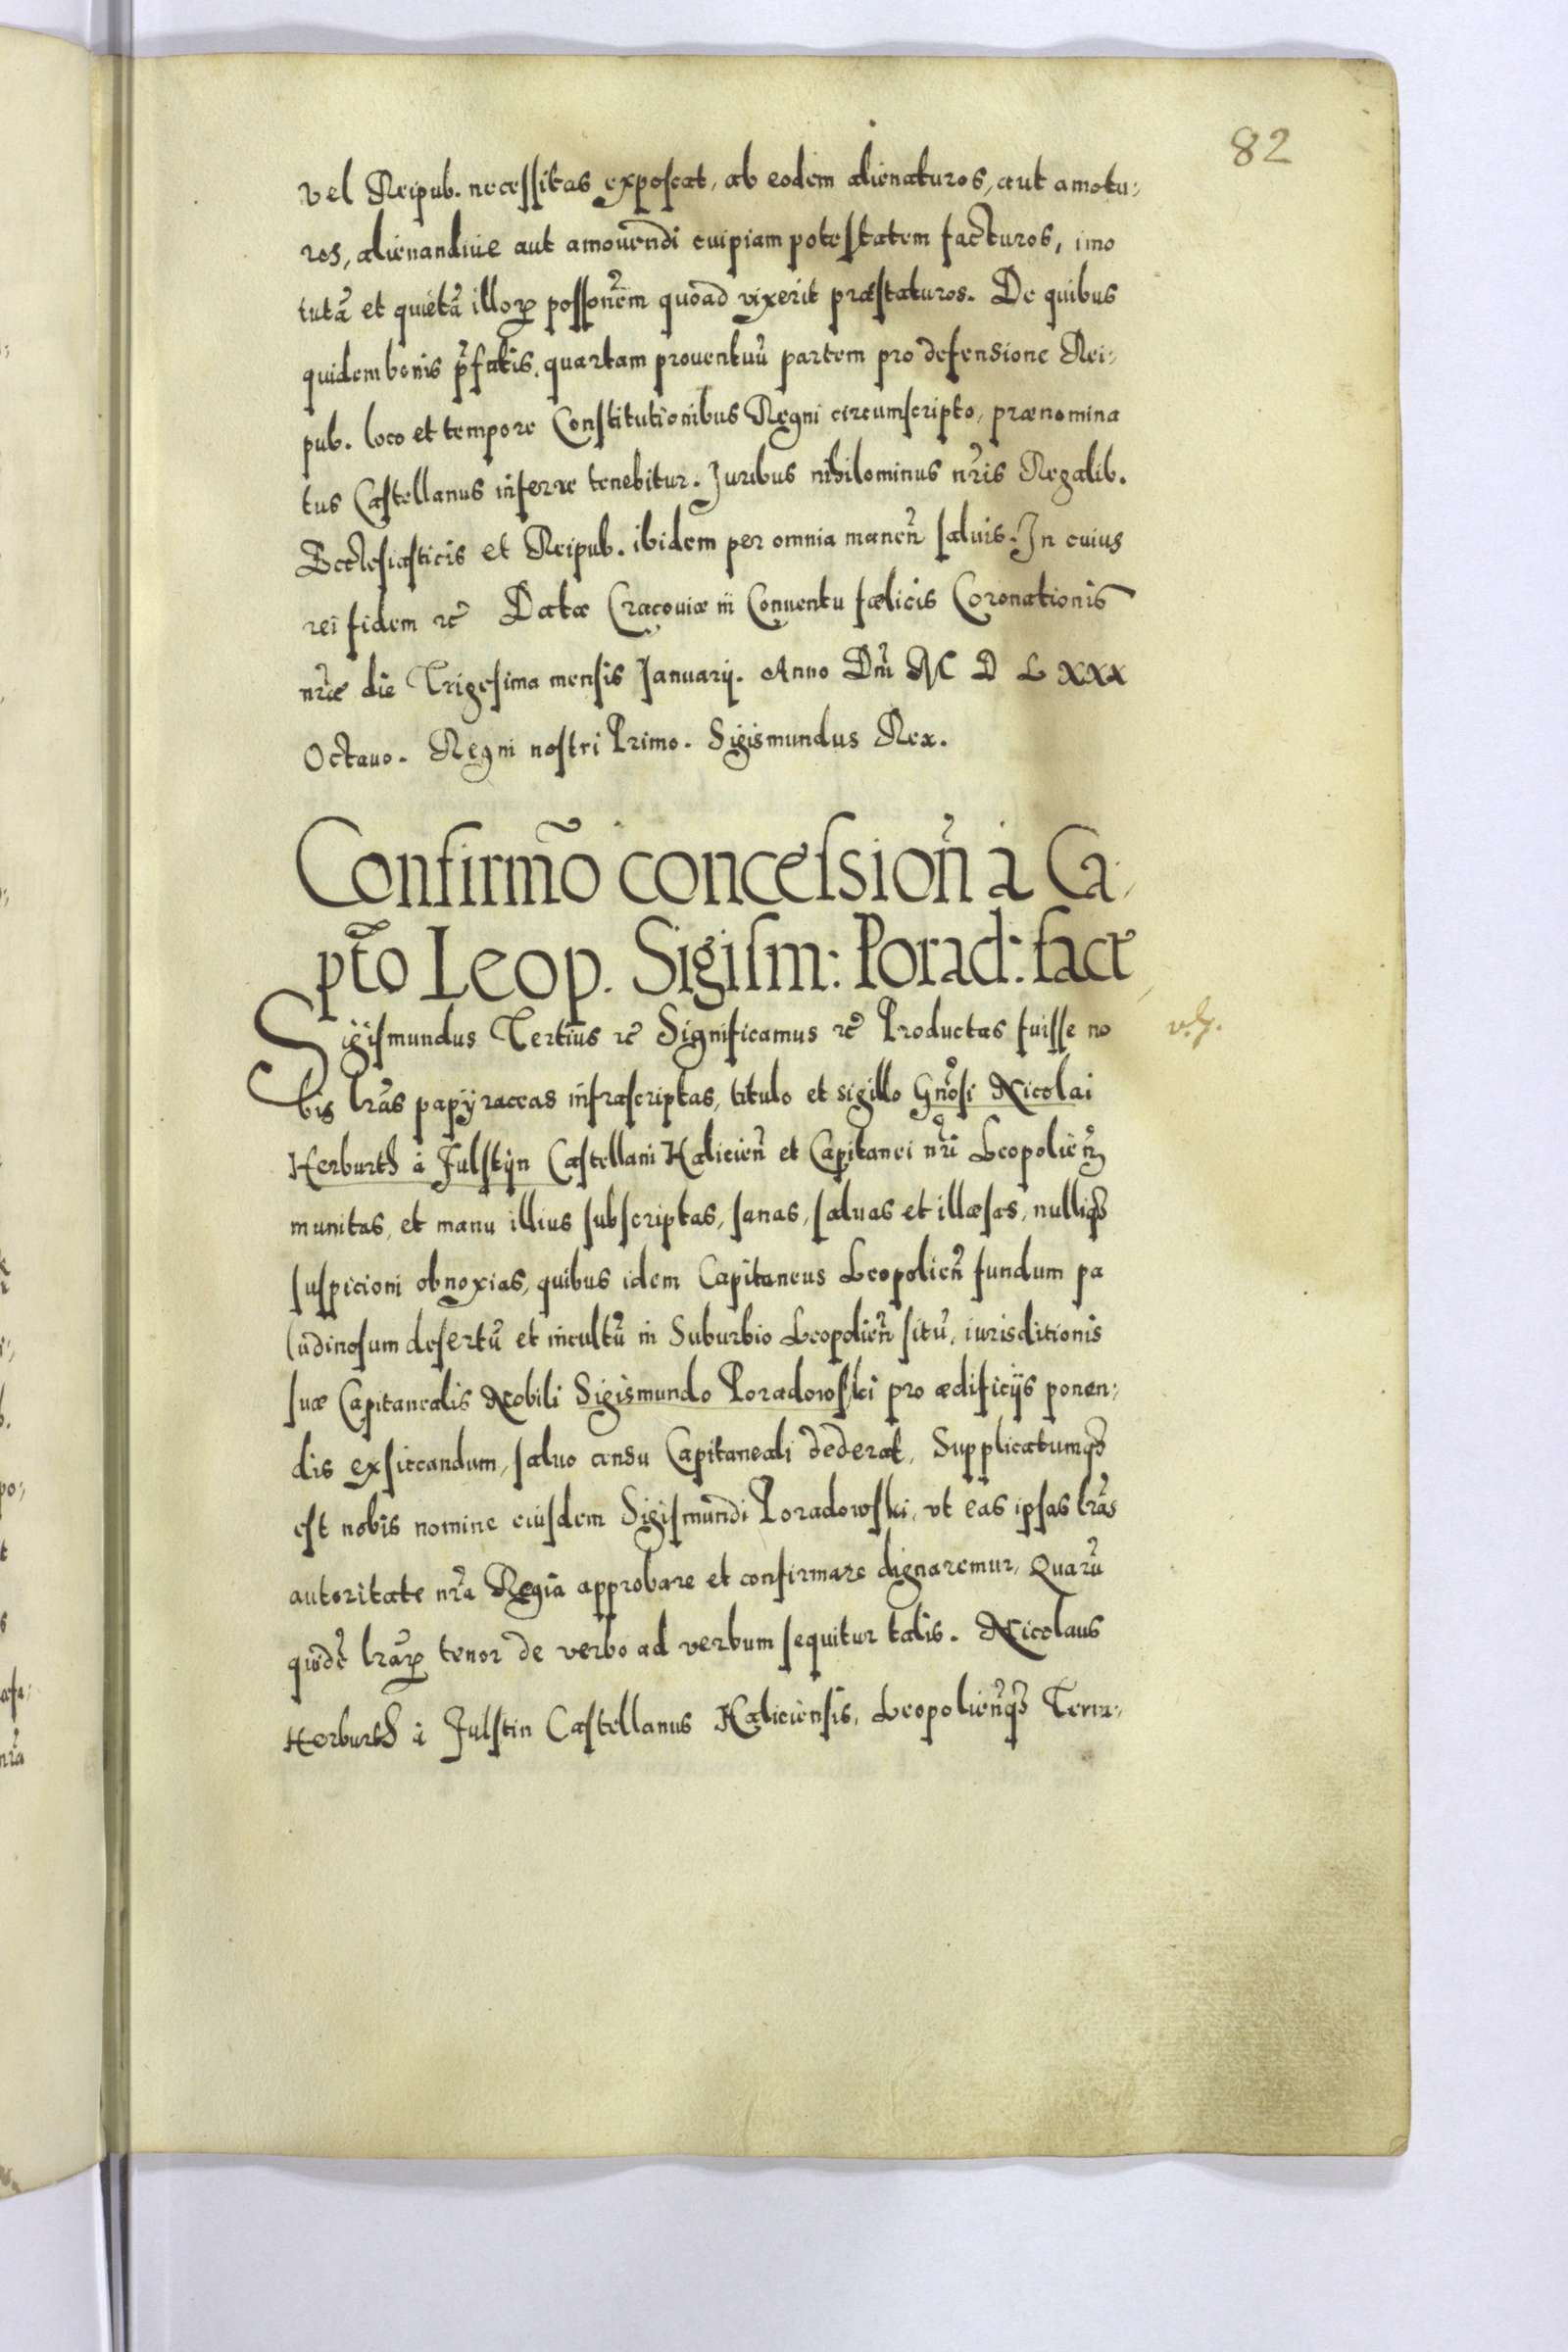 82
vel Reipub. necessitas exposcat, ab eodem alienaturos, aut amotu:
ros, alienandiue aut amouendi cuipiam potestatem facturos, imo
tutã et quietã illoꝝ possonẽm quoad vixerit præstaturos. De quibus
quidem bonis p̃fatis, quartam prouentuũ partem pro defensione Rei:
pub. loco et tempore Constitutionibus Regni circumscripto, prænomina
tus Castellanus inferre tenebitur. Juribus nihilominus nr̃is Regalib.
Ecclesiasticis et Reipub. ibidem per omnia maneñ saluis. In cuius
rei fidem ꝛc̃ Datæ Cracouiæ in Conuentu fælicis Coronationis
nr̃æ die Trigesima mensis Januarij. Anno Dñi M D L XXX
Octauo. Regni nostri Primo. Sigismundus Rex.
Confirmõ concessioñ à Ca:
pt̃o Leop. Sigism: Porad: fact
Sigismundus Tertius ꝛc̃ Significamus ꝛc̃ Productas fuisse no
bis lr̃as papÿraceas infrascriptas, titulo et sigillo Gñosi Nicolai
Herburth à Fulstÿn Castellani Halicieñ et Capitanei nr̃i Leopolieñ
munitas, et manu illius subscriptas, sanas, saluas et illæsas, nulliqꝫ
suspicioni obnoxias, quibus idem Capitaneus Leopolieñ fundum pa
ludinosum desertũ et incultũ in Suburbio Leopolieñ sitũ, iurisditionis
suæ Capitanealis Nobili Sigismundo Poradowski pro ædificijs ponen:
dis exsiccandum, saluo censu Capitaneali dederat, Supplicatumqꝫ
est nobis nomine eiusdem Sigismundi Poradowski, vt eas ipsas lr̃as
autoritate nr̃a Regia approbare et confirmare dignaremur, Quarũ
quidẽ lr̃aꝝ tenor de verbo ad verbum sequitur talis. Nicolaus
Herburth à Fulstin Castellanus Haliciensis, Leopolieñqꝫ Terra: